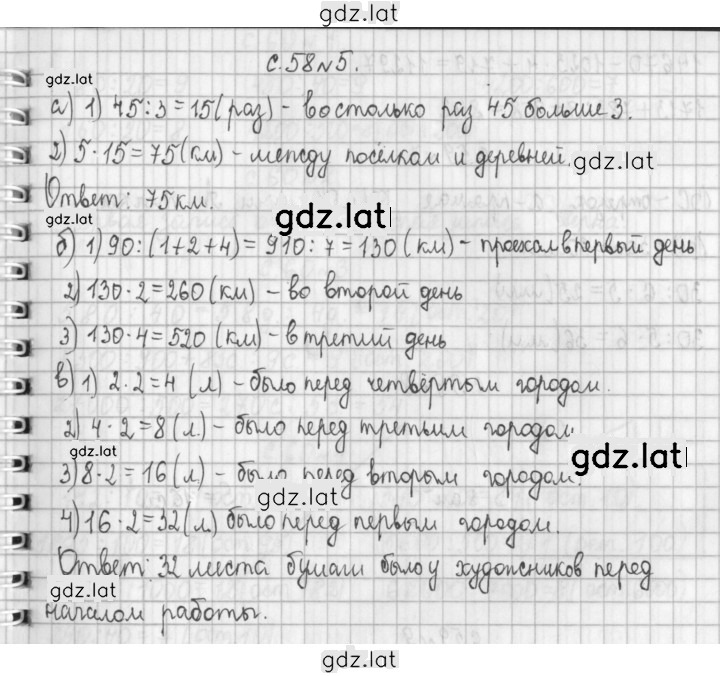 gdz.lat
с.58 №5.
gdz.lat
а) 1) 45:3=15(раз) - во столько раз 45 больше 3.
2) 5·15=75(км) - между посёлком и деревней. gdz.lat
Ответ: 75 км.
gdz.lat
б) 1) 90:(1+2+4)=910:7=130(км) - проехал в первый день
2) 130·2=260(км) - во второй день
3) 130·4=520 (км) - в третий день
в) 1) 2·2=4 (л) - было перед четвёртым городом.
2) 4·2=8(л) - было перед третьим городом
gdz.lat
3) 8·2=16(л) - было перед вторым городом. gdz.lat
gdz.lat
4) 16·2=32(л) было перед первым городом.
Ответ: 32 листа бумаги было у художников перед
gdz.lat
началом работы.
gdz.lat